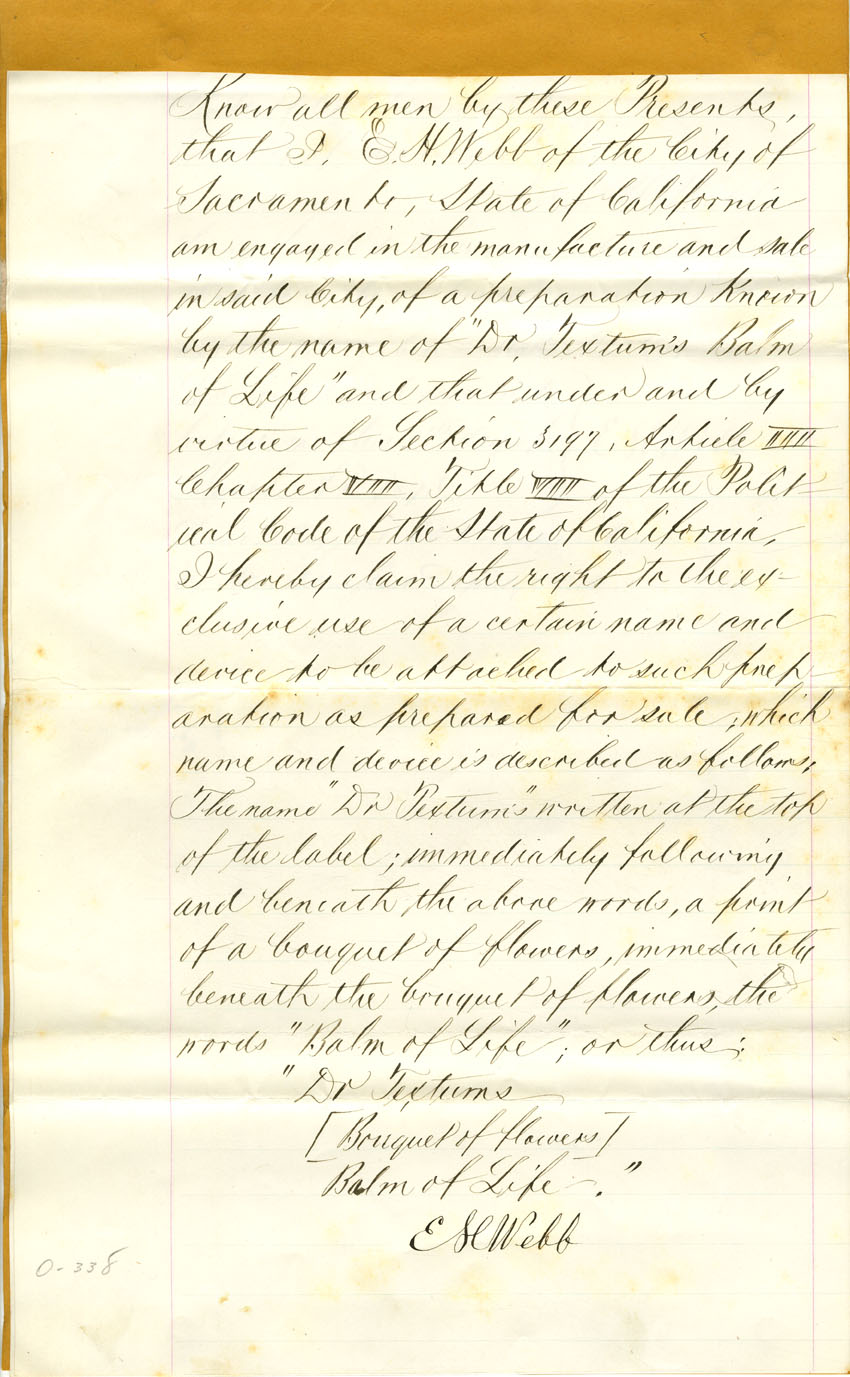 Know all men by these Presents,
that I, E. H. Webb of the City of
Sacramento, State of California
am engaged in the manufacture and sale
in said City, of a preparation Known
by the name of "Dr. Textum's Balm
of Life" and that under and by
virtue of Section 3197, Article III
Chapter VII, Title VII of the Polit-
ical Code of the State of California,
I hereby claim the right to the ex-
clusive use of a certain name and
device to be attached to such prep-
aration as prepared for sale, which
name and device is described as follows:
The name "Dr Textum's" written at the top
of the label; immediately following
and beneath the above words, a print
of a bouquet of flowers, immediately
beneath the bouquet of flowers, the
words "Balm of Life"; or thus:
"Dr Textums
[Bouquet of flowers]
Balm of Life."
E H Webb
0-338